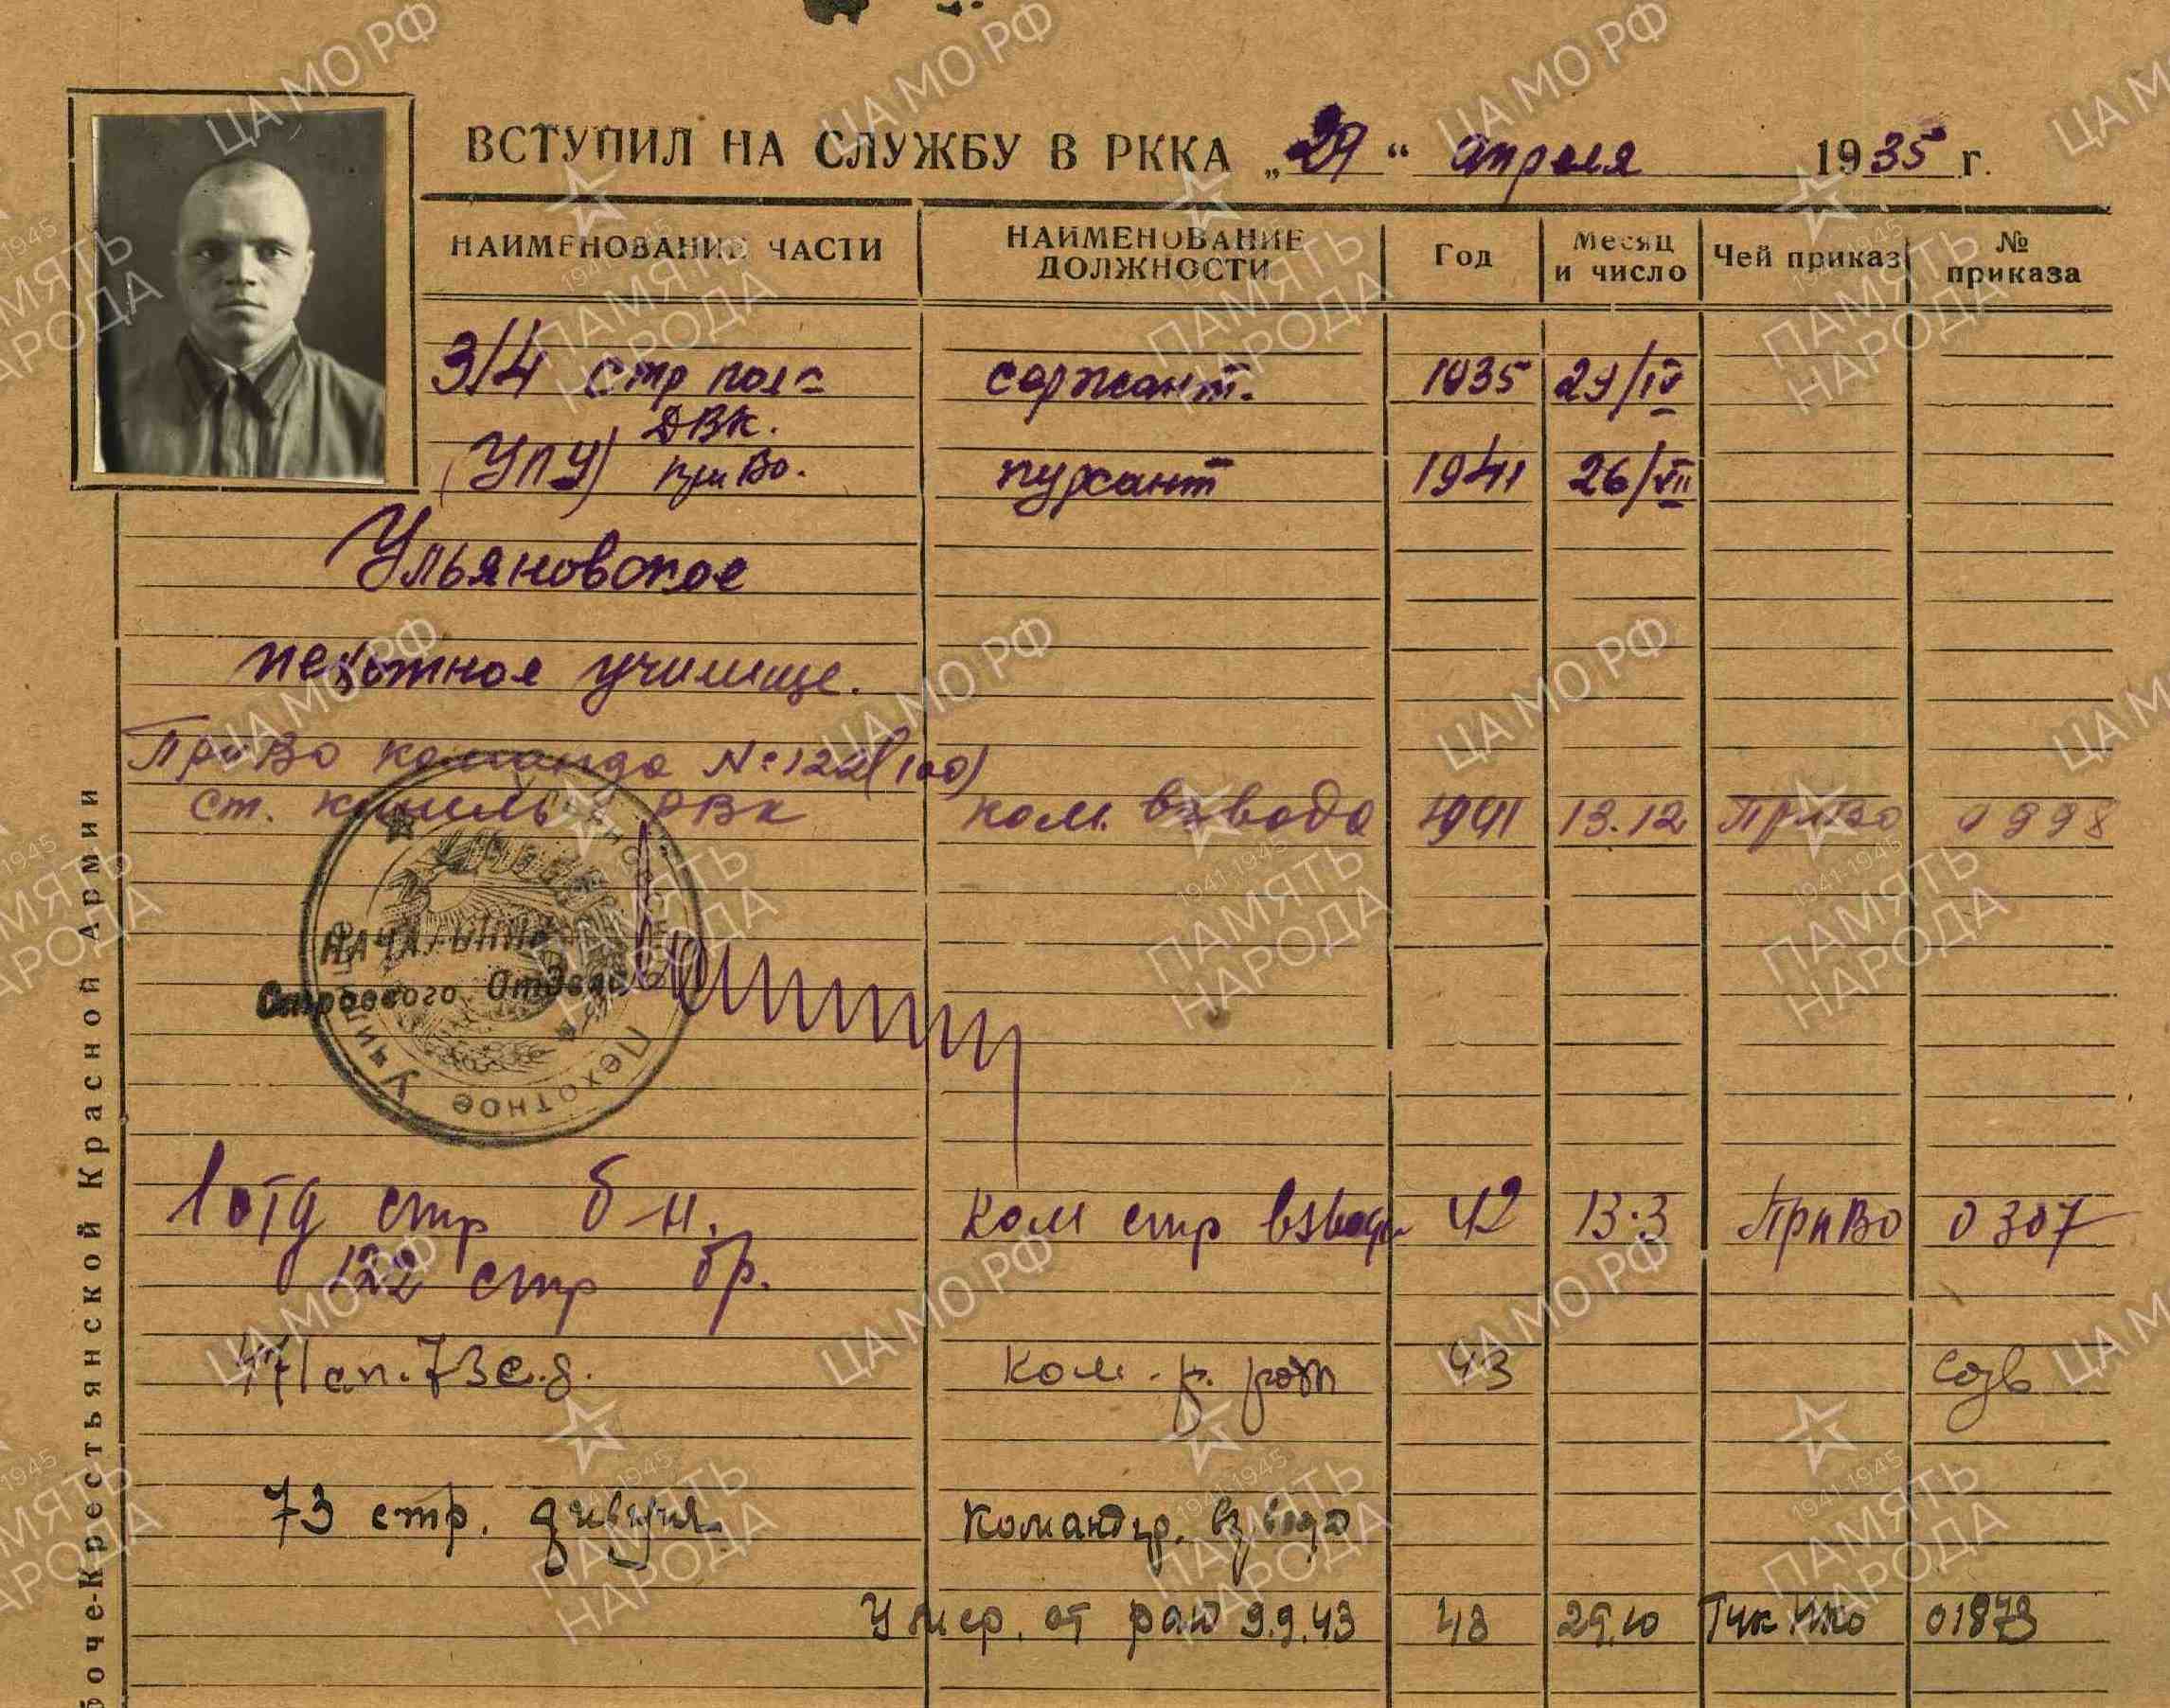 ВСТУПИЛ НА СЛУЖБУ В РККА „29“ апреля 1935 г.
НАИМЕНОВАНИЕ ЧАСТИ
НАИМЕНОВАНИЕ ДОЛЖНОСТИ
Год
Месяц и число
Чей приказ
№ приказа
3/4 стр пол= сержант. 1935 29/IV
ДВК.
(УПУ) приВо. курсант 1941 26/VII
Ульяновское
пехотное училище.
ПриВо команда №122(100)
ст. РВК ком. взвода 1941 13.12 ПриВо 0998
НАЧАЛЬНИК
Строевого Отдела
Пехотное Училище
1 отд стр б-н. Ком стр взвода 42 13.3 ПриВо 0307
122 стр бр.
471 сп. 73 с.д. Ком. р. рот 43
73 стр. дивизия Командир. взвода
Умер. от ран 9.9.43 43 29.10 ГУК НКО 01873
боче-Крестьянской Красной Армии
ЦА МО РФ
1941-1945
ПАМЯТЬ НАРОДА